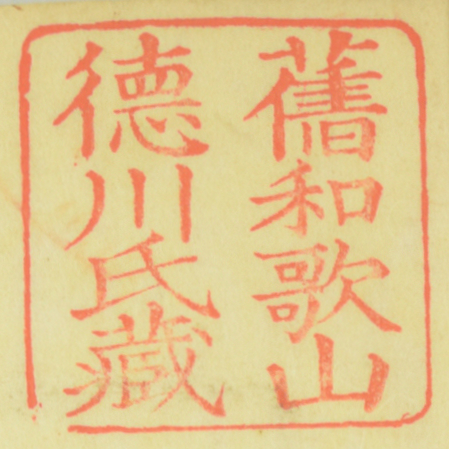 舊和歌山
徳川氏藏